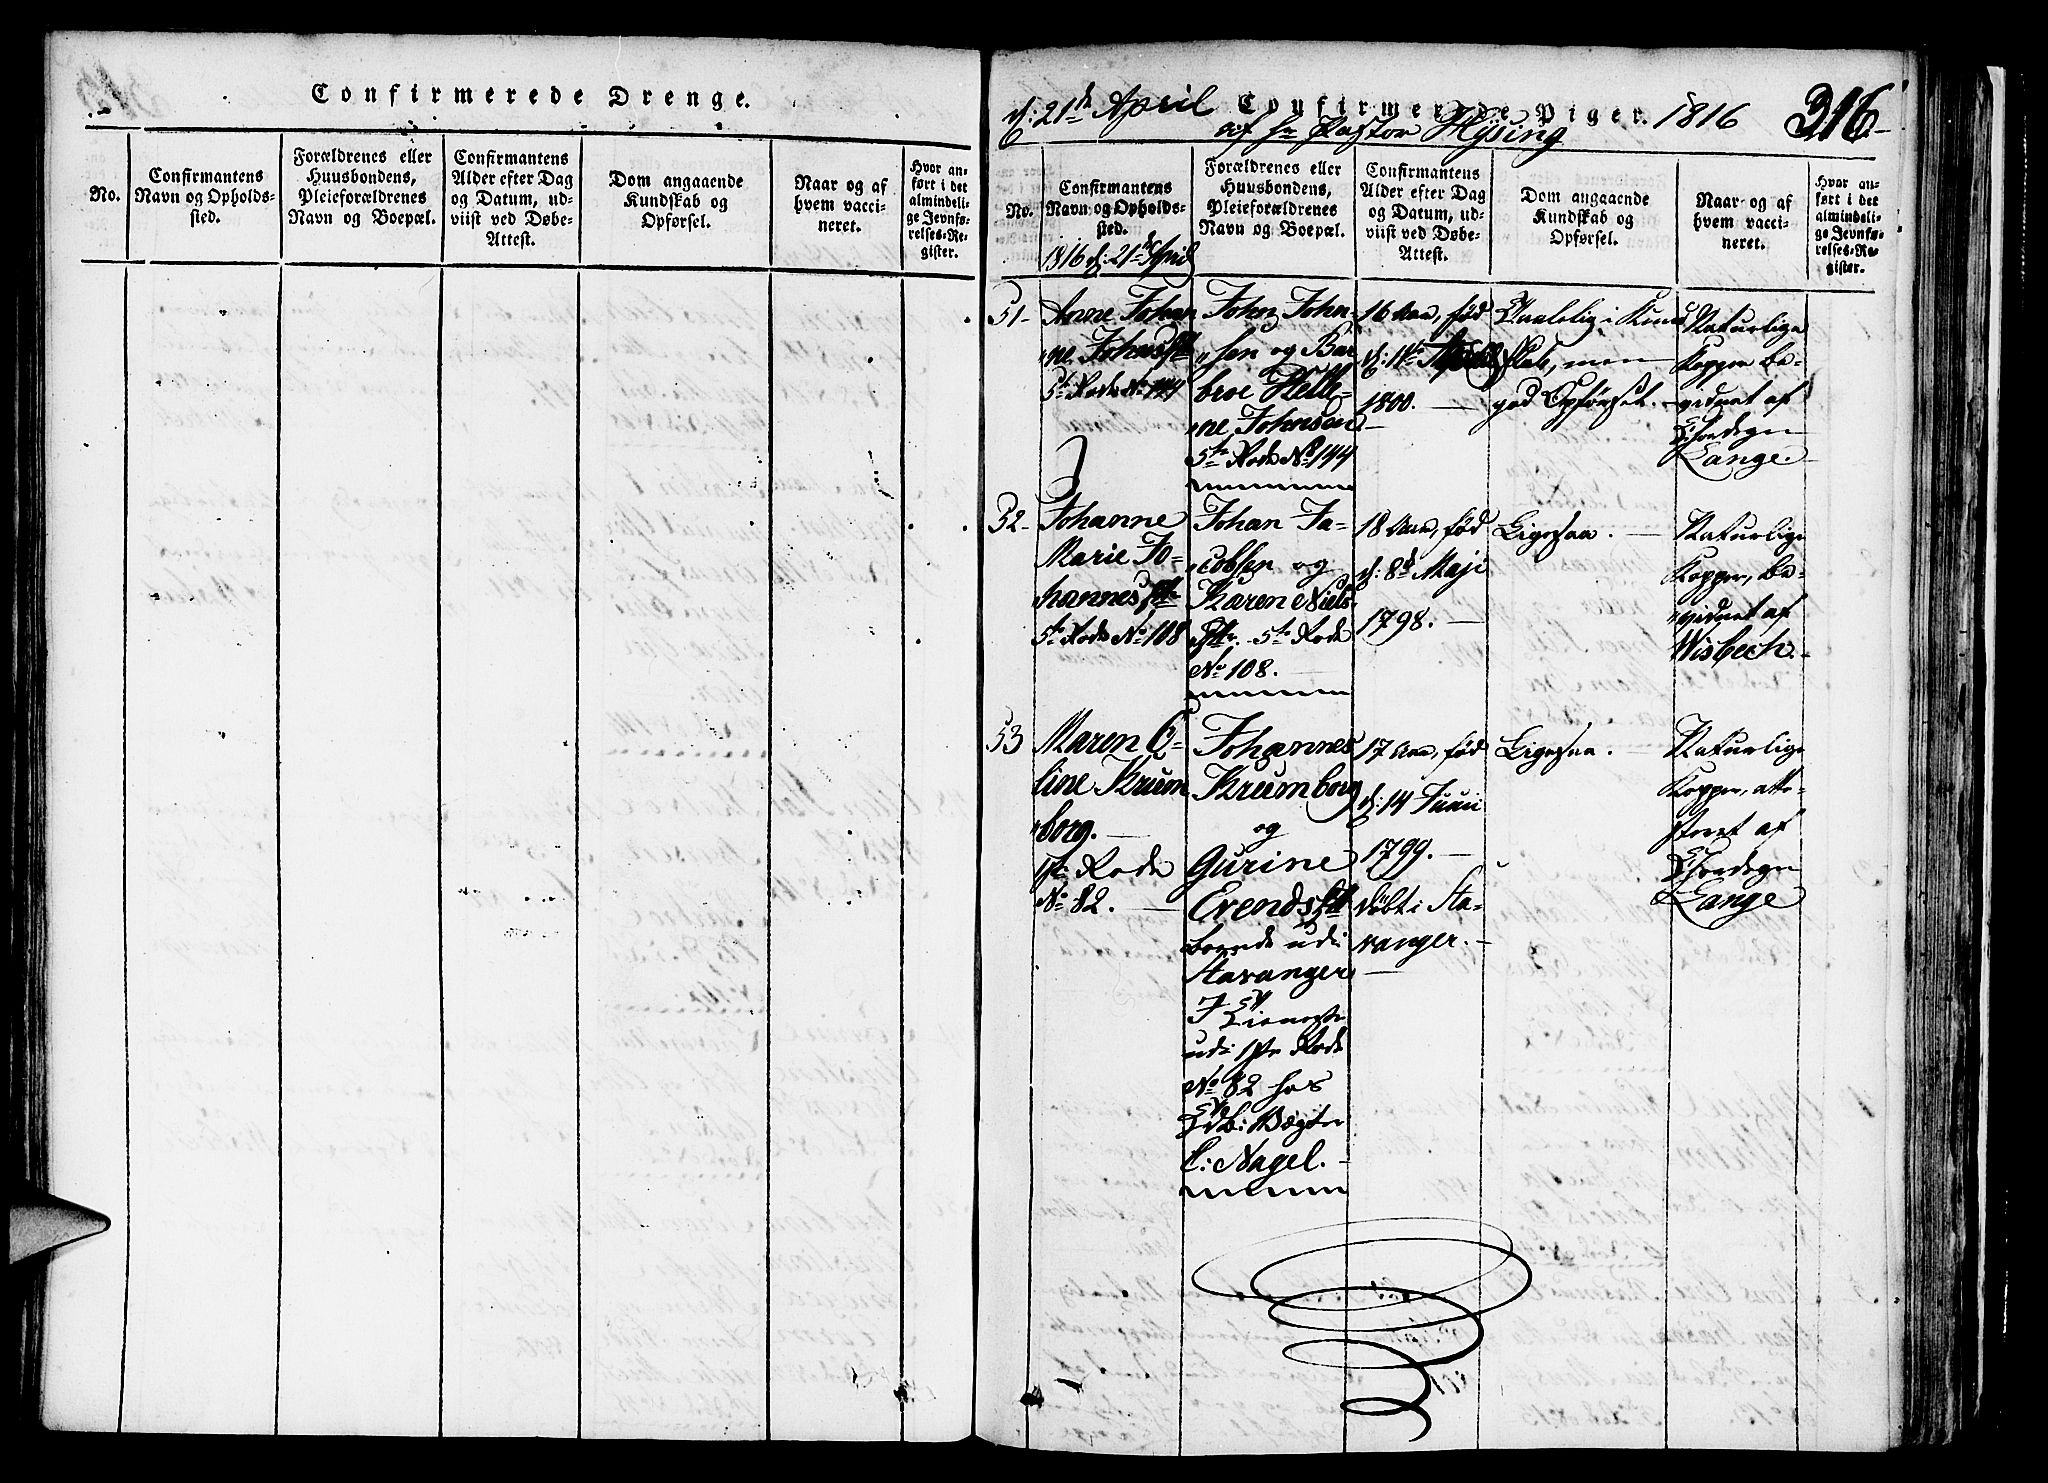 Confirmerede Drenge.
No.
Confirmantens
Navn og Opholds-
sted.
Forældrenes eller
Huusbondens,
Pleieforældrenes
Navn og Boepæl.
Confirmantens
Alder efter Dag
og Datum, ud-
viist ved Døbe-
Attest.
Dom angaaende
Kundskab og
Opførsel.
Naar og af
hvem vacci-
neret.
Hvor an-
ført i det
almindeli-
ge Jevnfø-
relses-Re-
gister.
d: 21de April Confirmerede Piger. 1816 316
af Hr Pastor Hysing
No.
Confirmantens
Navn og Opholds-
sted.
1816 d: 21de April
Forældrenes eller
Huusbondens,
Pleieforældrenes
Navn og Boepæl.
Confirmantens
Alder efter Dag
og Datum, ud-
viist ved Døbe-
Attest.
Dom angaaende
Kundskab og
Opførsel.
Naar og af
hvem vacci-
neret.
Hvor an-
ført i det
almindeli-
ge Jevnfø-
relses-Re-
gister.
51-
Anne Johan
ne Johns
5te Rode No 144
John John-
sen og Bar
broe Helle-
ne Johnson
5te Rode No 144
16 Aar, fød
d: 11te
1800.
Taalelig i Kund
skab, men
god Opførsel.
Naturlige
Kopper be-
vidnet af
Chordegn
Lange.
52-
Johanne
Marie Jo-
hannes
5te Rode No 108
Johan Ja-
cobsen og
Karen Niels-
Dtr. 5te Rode
No 108.
18 Aar, fød
d: 8d Maji
1798.
Ligesaa.
Naturlige
Kopper, be-
vidnet af
Wisbech.
53
Maren E-
line Krum
borg.
1ste Rode
No 82.
Johannes
Krumborg
og
Gurine
Erends
boende udi
Stavanger
I Tieneste
udi 1ste Rode
No 82 hos
Bøgter
C: Nagel.
17 Aar, fød
d: 14 Juni
1799.
døbt i Sta-
vanger.
Ligesaa.
Naturlige
Kopper, atte-
steret af
Chordegn
Lange